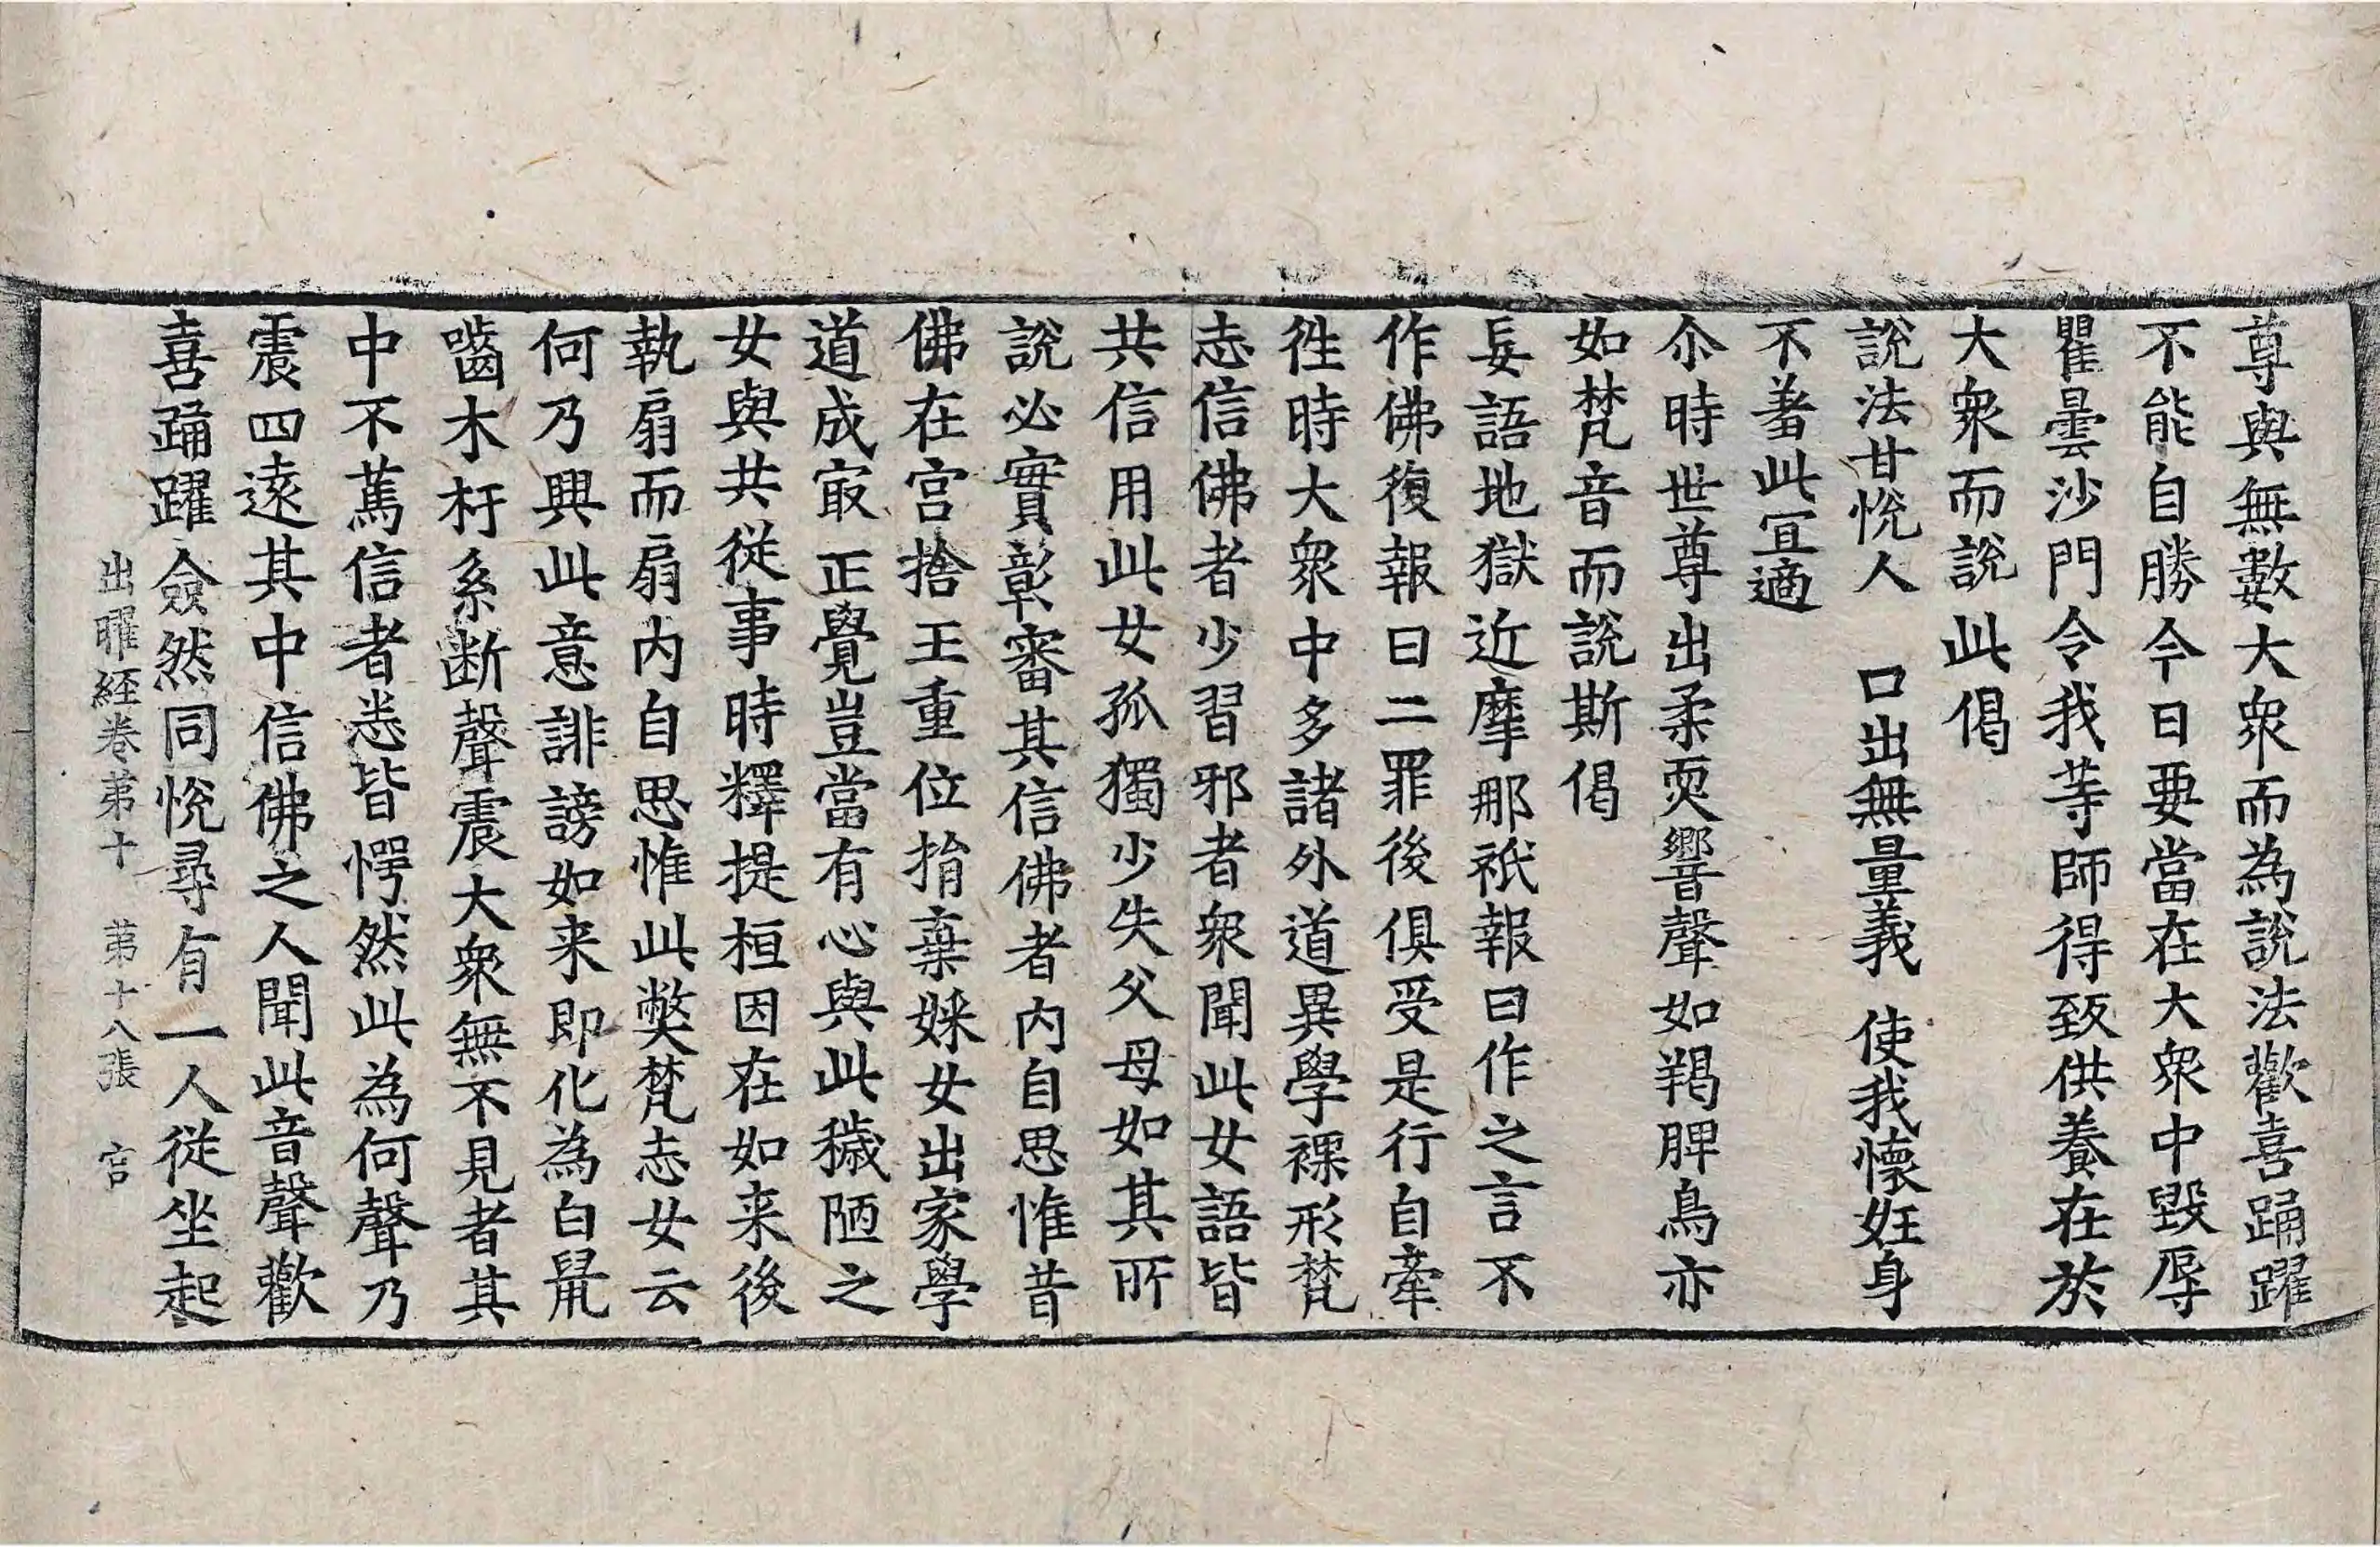 尊與無數大衆而為說法歡喜踊躍
不能自勝今日要當在大衆中毀辱
瞿曇沙門令我等師得致供養在於
大衆而說此偈
說法甘悅人　口出無量義　使我懷妊身
不羞此宜適
尒時世尊出柔耎響聲如羯脾鳥亦
如梵音而說斯偈
妄語地獄近摩那祇報曰作之言不
作佛復報曰二罪後俱受是行自牽
徃時大衆中多諸外道異學裸形梵
志信佛者少習邪者衆聞此女語皆
共信用此女孤獨少失父母如其所
說必實彰審其信佛者內自思惟昔
佛在宮捨王重位捐棄婇女出家學
道成㝡正覺豈當有心與此穢陋之
女與共從事時釋提桓因在如来後
執扇而扇內自思惟此弊梵志女云
何乃興此意誹謗如来即化為白鼠
嚙木杅系断聲震大衆無不見者其
中不篤信者悉皆愕然此為何聲乃
震四遠其中信佛之人聞此音聲歡
喜踊躍僉然同悅尋有一人從坐起
出曜経卷苐十　苐十八張　宫